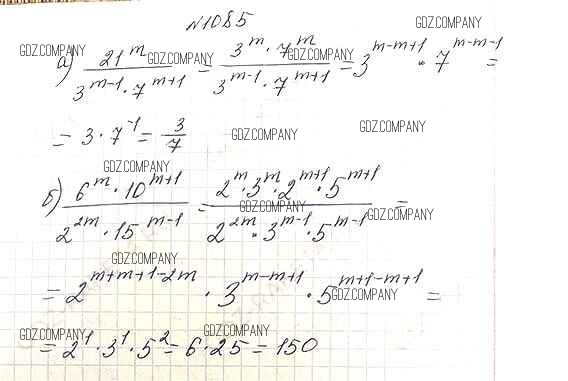 №1085
GDZ.COMPANY
GDZ.COMPANY GDZ.COMPANY GDZ.COMPANY
а) 21^m / (3^(m-1) · 7^(m+1)) = (3^m · 7^m) / (3^(m-1) · 7^(m+1)) = 3^(m-m+1) · 7^(m-m-1) =
= 3 · 7^(-1) = 3/7
GDZ.COMPANY GDZ.COMPANY
GDZ.COMPANY
б) (6^m · 10^(m+1)) / (2^(2m) · 15^(m-1)) = (2^m · 3^m · 2^(m+1) · 5^(m+1)) / (2^(2m) · 3^(m-1) · 5^(m-1)) =
GDZ.COMPANY GDZ.COMPANY
GDZ.COMPANY
= 2^(m+m+1-2m) · 3^(m-m+1) · 5^(m+1-m+1) =
GDZ.COMPANY
GDZ.COMPANY GDZ.COMPANY
= 2^1 · 3^1 · 5^2 = 6 · 25 = 150